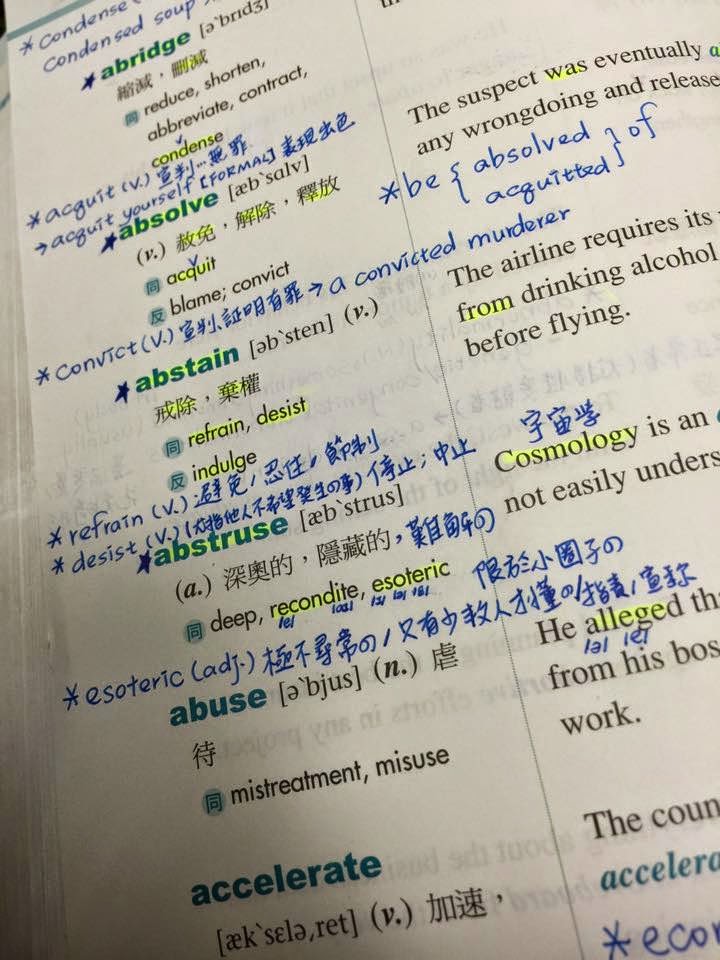 *condense
condensed soup
★abridge [ə`brɪdʒ]
縮減，刪減
同 reduce, shorten,
abbreviate, contract,
condense
*acquit (v.) 宣判…無罪
→acquit yourself [FORMAL] 表現出色
★absolve [æb`sɑlv]
(v.) 赦免，解除，釋放
同 acquit
反 blame; convict
*convict (v.) 宣判、証明有罪 → a convicted murderer
★abstain [əb`sten] (v.)
戒除，棄權
同 refrain, desist
反 indulge
*refrain (v.) 避免，忍住，節制
*desist (v.) (尤指他人不希望發生の事) 停止；中止
★abstruse [æb`strus]
(a.) 深奧的，隱藏的，難解の
同 deep, recondite, esoteric
*esoteric (adj.) 極不尋常の/只有少數人才懂の/
限於小圈子の
abuse [ə`bjus] (n.) 虐
待
同 mistreatment, misuse
accelerate
[æk`sɛlə͵ret] (v.) 加速，
The suspect was eventually
any wrongdoing and release
*be { absolved
acquitted } of
The airline requires its
from drinking alcohol
before flying.
宇宙學
Cosmology is an
not easily unders
指責，宣称
He alleged tha
|ə| |ɛ|
from his bos
work.
The coun
accelera
*econ